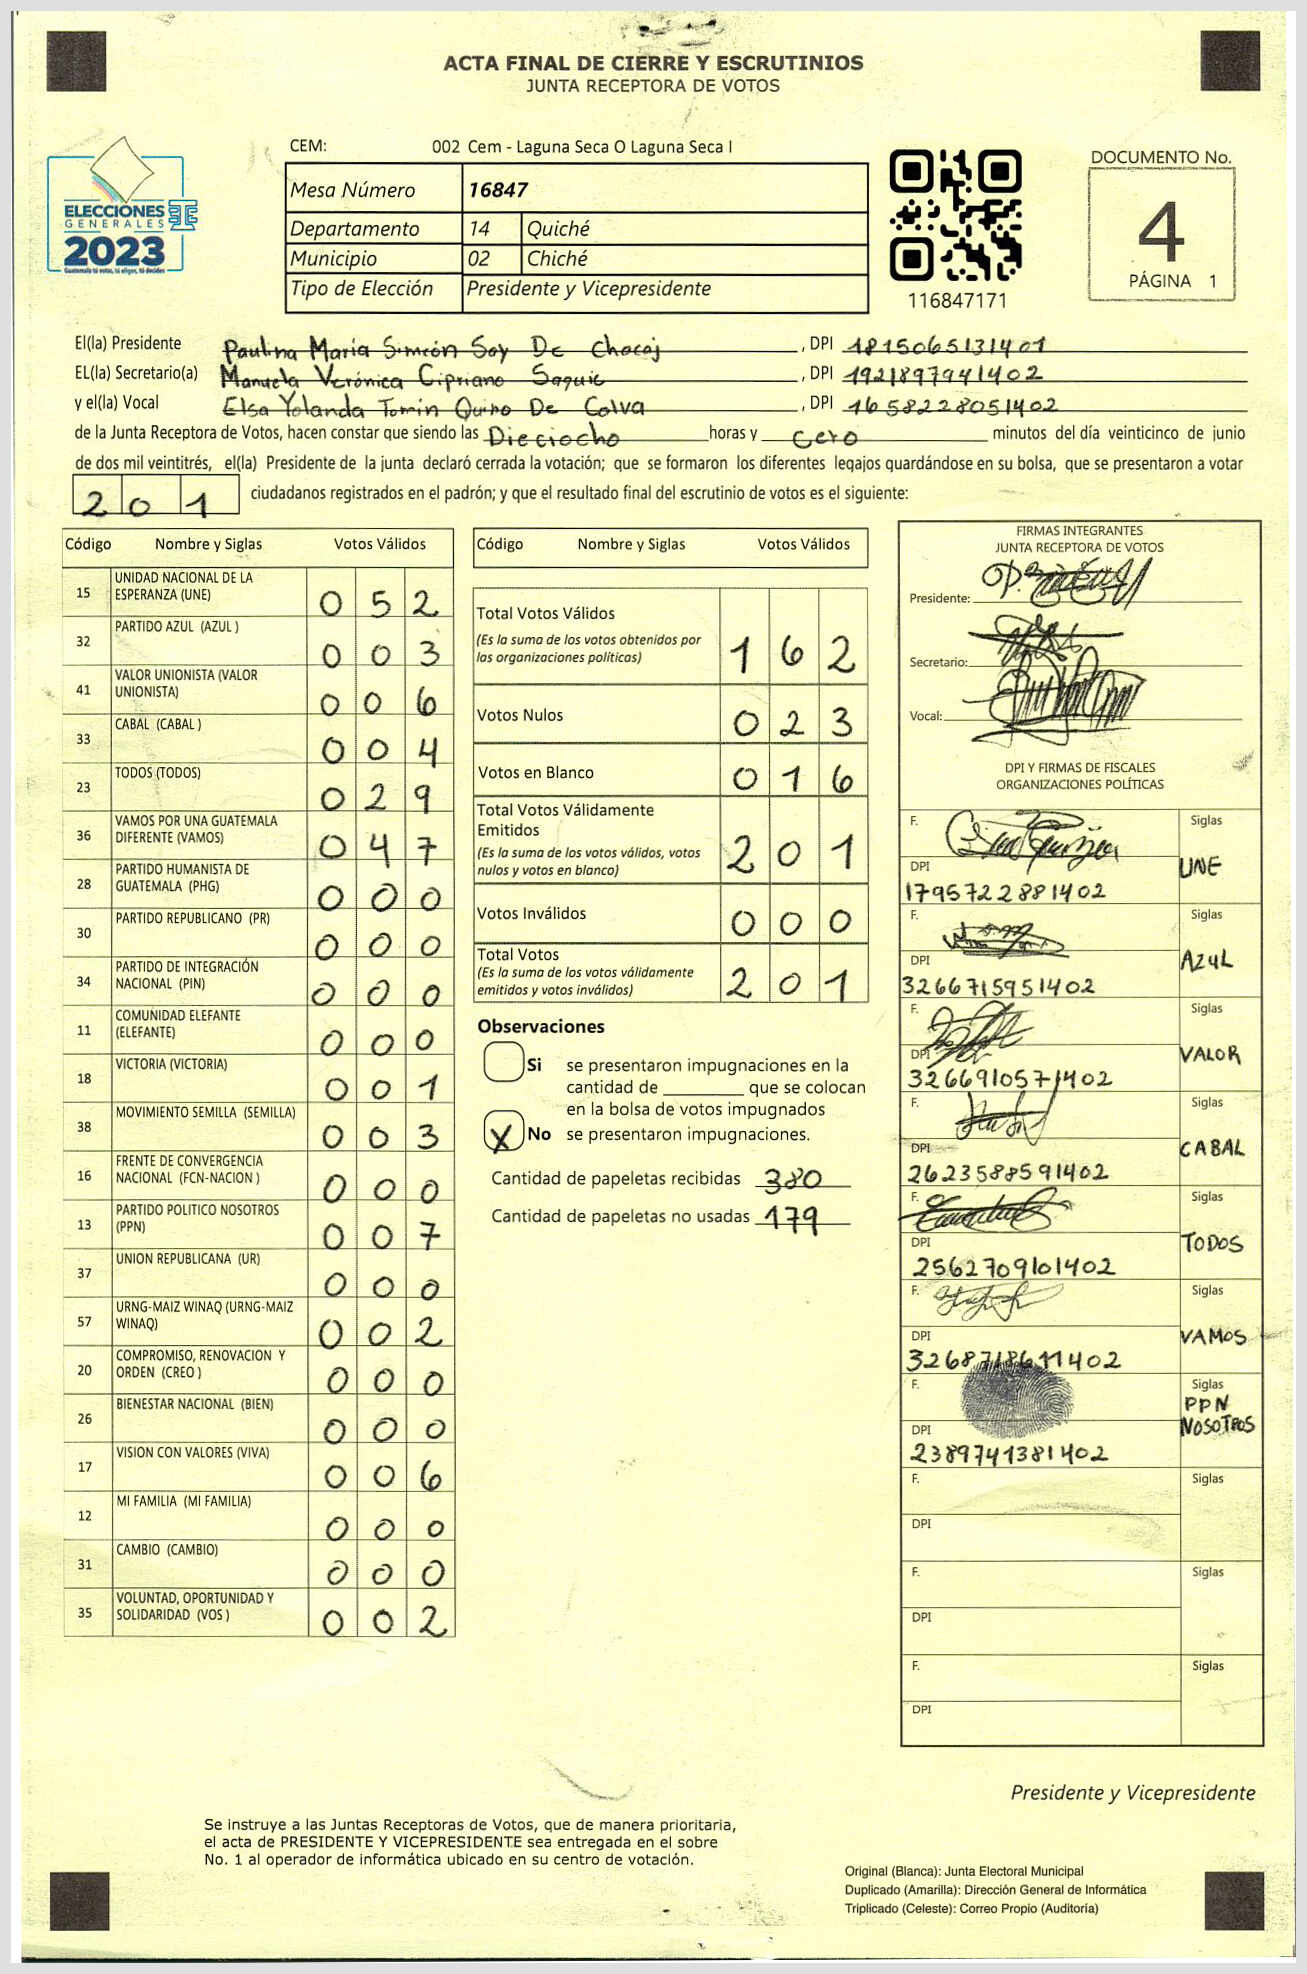 ACTA FINAL DE CIERRE Y ESCRUTINIOS
JUNTA RECEPTORA DE VOTOS
CEM: 002 Cem - Laguna Seca O Laguna Seca I
ELECCIONES
GENERALES
2023
Guatemala tú votas, tú eliges, tú decides
Mesa Número 16847
Departamento 14 Quiché
Municipio 02 Chiché
Tipo de Elección Presidente y Vicepresidente
116847171
DOCUMENTO No.
4
PÁGINA 1
El(la) Presidente Paulina María Simeón Soy De Chacaj, DPI 1815065131401
EL(la) Secretario(a) Manuela Verónica Cipriano Saquic, DPI 1921897941402
y el(la) Vocal Elsa Yolanda Tomín Quino De Calva, DPI 1658228051402
de la Junta Receptora de Votos, hacen constar que siendo las Dieciocho horas y cero minutos del día veinticinco de junio
de dos mil veintitrés, el(la) Presidente de la junta declaró cerrada la votación; que se formaron los diferentes legajos guardándose en su bolsa, que se presentaron a votar
201 ciudadanos registrados en el padrón; y que el resultado final del escrutinio de votos es el siguiente:
Código Nombre y Siglas Votos Válidos
15 UNIDAD NACIONAL DE LA ESPERANZA (UNE) 052
32 PARTIDO AZUL (AZUL ) 003
41 VALOR UNIONISTA (VALOR UNIONISTA) 006
33 CABAL (CABAL ) 004
23 TODOS (TODOS) 029
36 VAMOS POR UNA GUATEMALA DIFERENTE (VAMOS) 047
28 PARTIDO HUMANISTA DE GUATEMALA (PHG) 000
30 PARTIDO REPUBLICANO (PR) 000
34 PARTIDO DE INTEGRACIÓN NACIONAL (PIN) 000
11 COMUNIDAD ELEFANTE (ELEFANTE) 000
18 VICTORIA (VICTORIA) 001
38 MOVIMIENTO SEMILLA (SEMILLA) 003
16 FRENTE DE CONVERGENCIA NACIONAL (FCN-NACION ) 000
13 PARTIDO POLITICO NOSOTROS (PPN) 007
37 UNION REPUBLICANA (UR) 000
57 URNG-MAIZ WINAQ (URNG-MAIZ WINAQ) 002
20 COMPROMISO, RENOVACION Y ORDEN (CREO ) 000
26 BIENESTAR NACIONAL (BIEN) 000
17 VISION CON VALORES (VIVA) 006
12 MI FAMILIA (MI FAMILIA) 000
31 CAMBIO (CAMBIO) 000
35 VOLUNTAD, OPORTUNIDAD Y SOLIDARIDAD (VOS ) 002
Código Nombre y Siglas Votos Válidos
Total Votos Válidos 162
(Es la suma de los votos obtenidos por
las organizaciones políticas)
Votos Nulos 023
Votos en Blanco 016
Total Votos Válidamente
Emitidos 201
(Es la suma de los votos válidos, votos
nulos y votos en blanco)
Votos Inválidos 000
Total Votos 201
(Es la suma de los votos válidamente
emitidos y votos inválidos)
Observaciones
Si se presentaron impugnaciones en la
cantidad de ________ que se colocan
en la bolsa de votos impugnados
X No se presentaron impugnaciones.
Cantidad de papeletas recibidas 380
Cantidad de papeletas no usadas 179
FIRMAS INTEGRANTES
JUNTA RECEPTORA DE VOTOS
Presidente:
Secretario:
Vocal:
DPI Y FIRMAS DE FISCALES
ORGANIZACIONES POLÍTICAS
F. Siglas
DPI UNE
1795722881402
F. Siglas
DPI AZUL
3266715951402
F. Siglas
DPI VALOR
3266910571402
F. Siglas
DPI CABAL
2623588591402
F. Siglas
DPI TODOS
2562709101402
F. Siglas
DPI VAMOS
3268718611402
F. Siglas
PPN
DPI NOSOTROS
2389741381402
F. Siglas
DPI
F. Siglas
DPI
F. Siglas
DPI
Presidente y Vicepresidente
Se instruye a las Juntas Receptoras de Votos, que de manera prioritaria,
el acta de PRESIDENTE Y VICEPRESIDENTE sea entregada en el sobre
No. 1 al operador de informática ubicado en su centro de votación.
Original (Blanca): Junta Electoral Municipal
Duplicado (Amarilla): Dirección General de Informática
Triplicado (Celeste): Correo Propio (Auditoría)